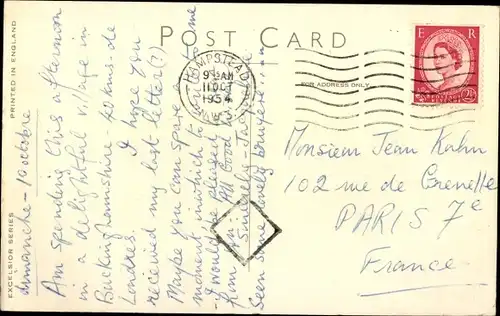 POST CARD
PRINTED IN ENGLAND
EXCELSIOR SERIES
FOR ADDRESS ONLY
HEMPSTEAD
9 15 AM
11 OCT
1954
E R
2½
Dimanche - 10 octobre
Am spending this afternoon
in a delightful village in
Buckinghamshire - 40 kms. de
Londres. I hope you
received my last letter (?)
Maybe you can spare a
moment in which to write to me
- I would be pleased
All Good
Sincerely -
Seen some lovely bruyère
Monsieur Jean Kahn
102 rue de Grenelle
PARIS 7e
France